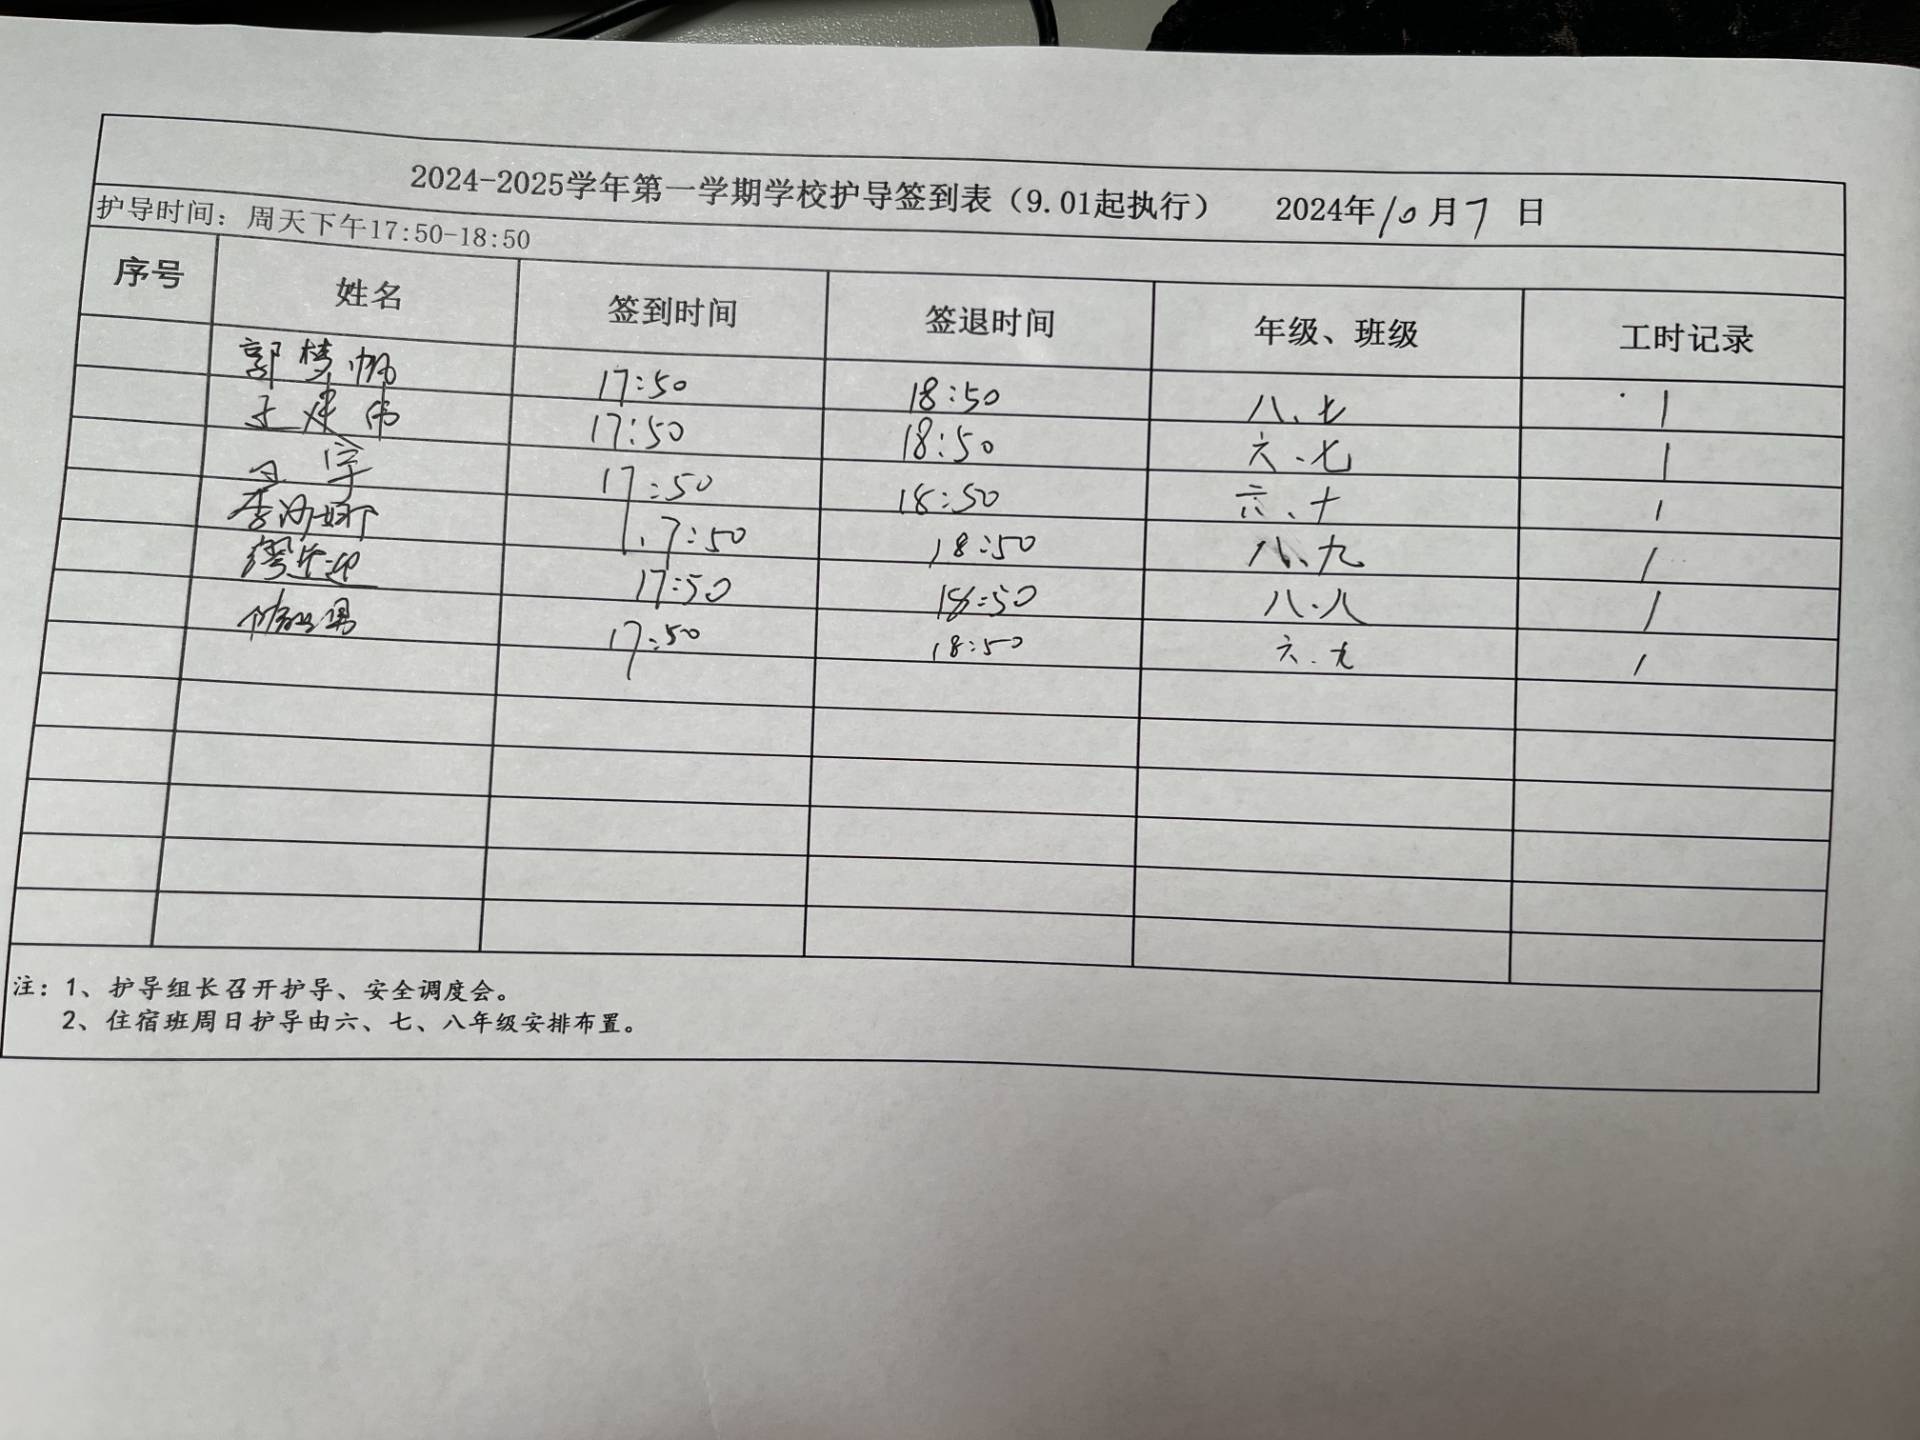 2024-2025学年第一学期学校护导签到表（9.01起执行） 2024年10月7日
护导时间：周天下午17:50-18:50
序号 姓名 签到时间 签退时间 年级、班级 工时记录
郭梦帆 17:50 18:50 八、七 1
王建伟 17:50 18:50 六.七 1
17:50 18:50 六、十 1
李 17:50 18:50 八、九 1
17:50 18:50 八.八 1
17:50 18:50 六.九 1
注：1、护导组长召开护导、安全调度会。
2、住宿班周日护导由六、七、八年级安排布置。